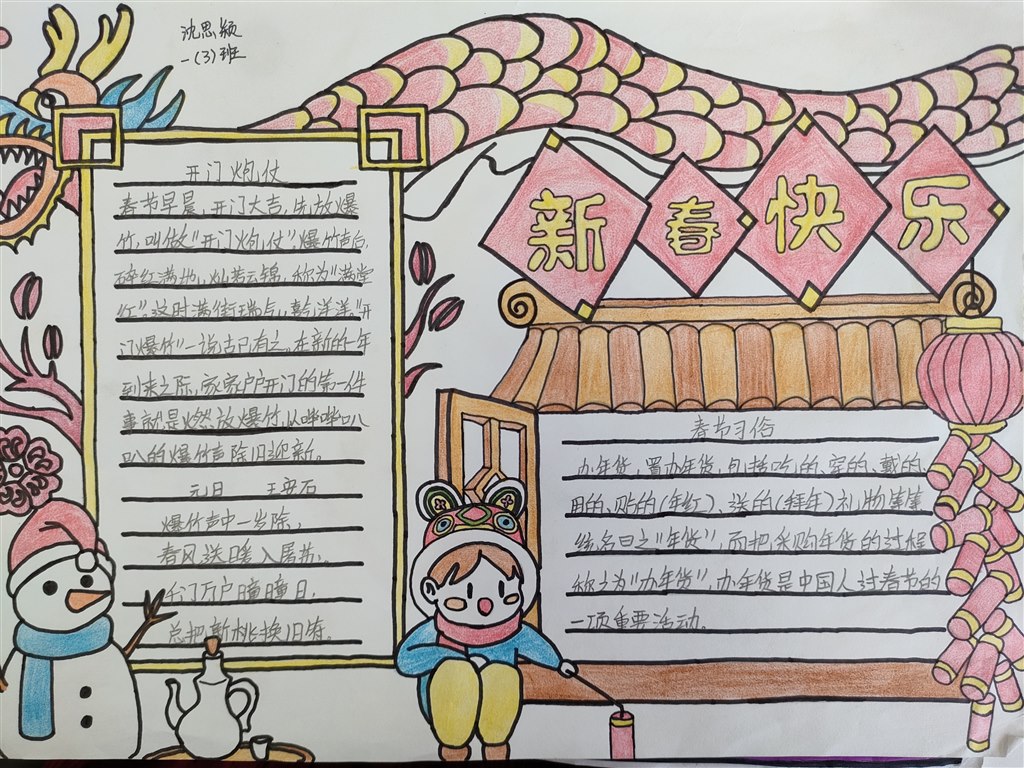 沈思颖
一(3)班
开门炮仗
春节早晨，开门大吉，先放爆
竹，叫做“开门炮仗”。爆竹声后，
碎红满地，灿若云锦，称为“满堂
红”。这时满街瑞气，喜气洋洋。“开
门爆竹”一说古已有之。在新的一年
到来之际，家家户户开门的第一件
事就是燃放爆竹，从哔哔叭
叭的爆竹声除旧迎新。
元日 王安石
爆竹声中一岁除，
春风送暖入屠苏。
千门万户曈曈日，
总把新桃换旧符。
新春快乐
春节习俗
办年货，置办年货，包括吃的、穿的、戴的、
用的、贴的(年红)、送的(拜年)礼物等等，
统名曰之“年货”，而把采购年货的过程
称之为“办年货”，办年货是中国人过春节的
一项重要活动。